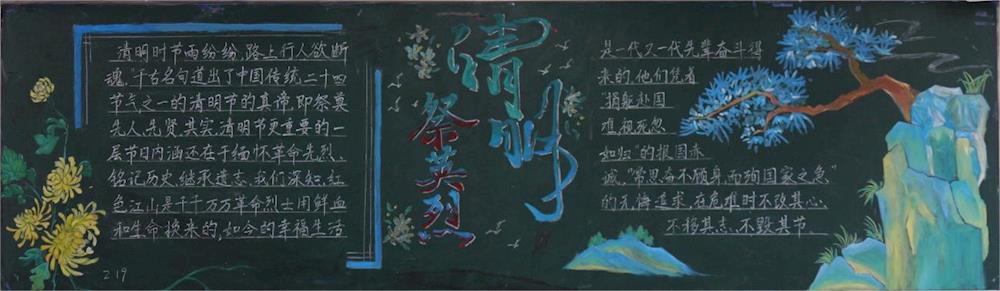 清明时节雨纷纷,路上行人欲断
魂,千古名句道出了中国传统二十四
节气之一的清明节的真谛,即祭奠
先人、先贤,其实,清明节更重要的一
层节日内涵还在于缅怀革命先烈、
铭记历史,继承遗志,我们深知,红
色江山是千千万万革命烈士用鲜血
和生命换来的,如今的幸福生活
2.19
清明
祭英烈
是一代又一代先辈奋斗得
来的,他们凭着
"捐躯赴国
难,视死忽
如归"的报国赤
诚,"常思奋不顾身,而殉国家之急"
的无悔追求,在危难时不改其心、
不移其志、不毁其节